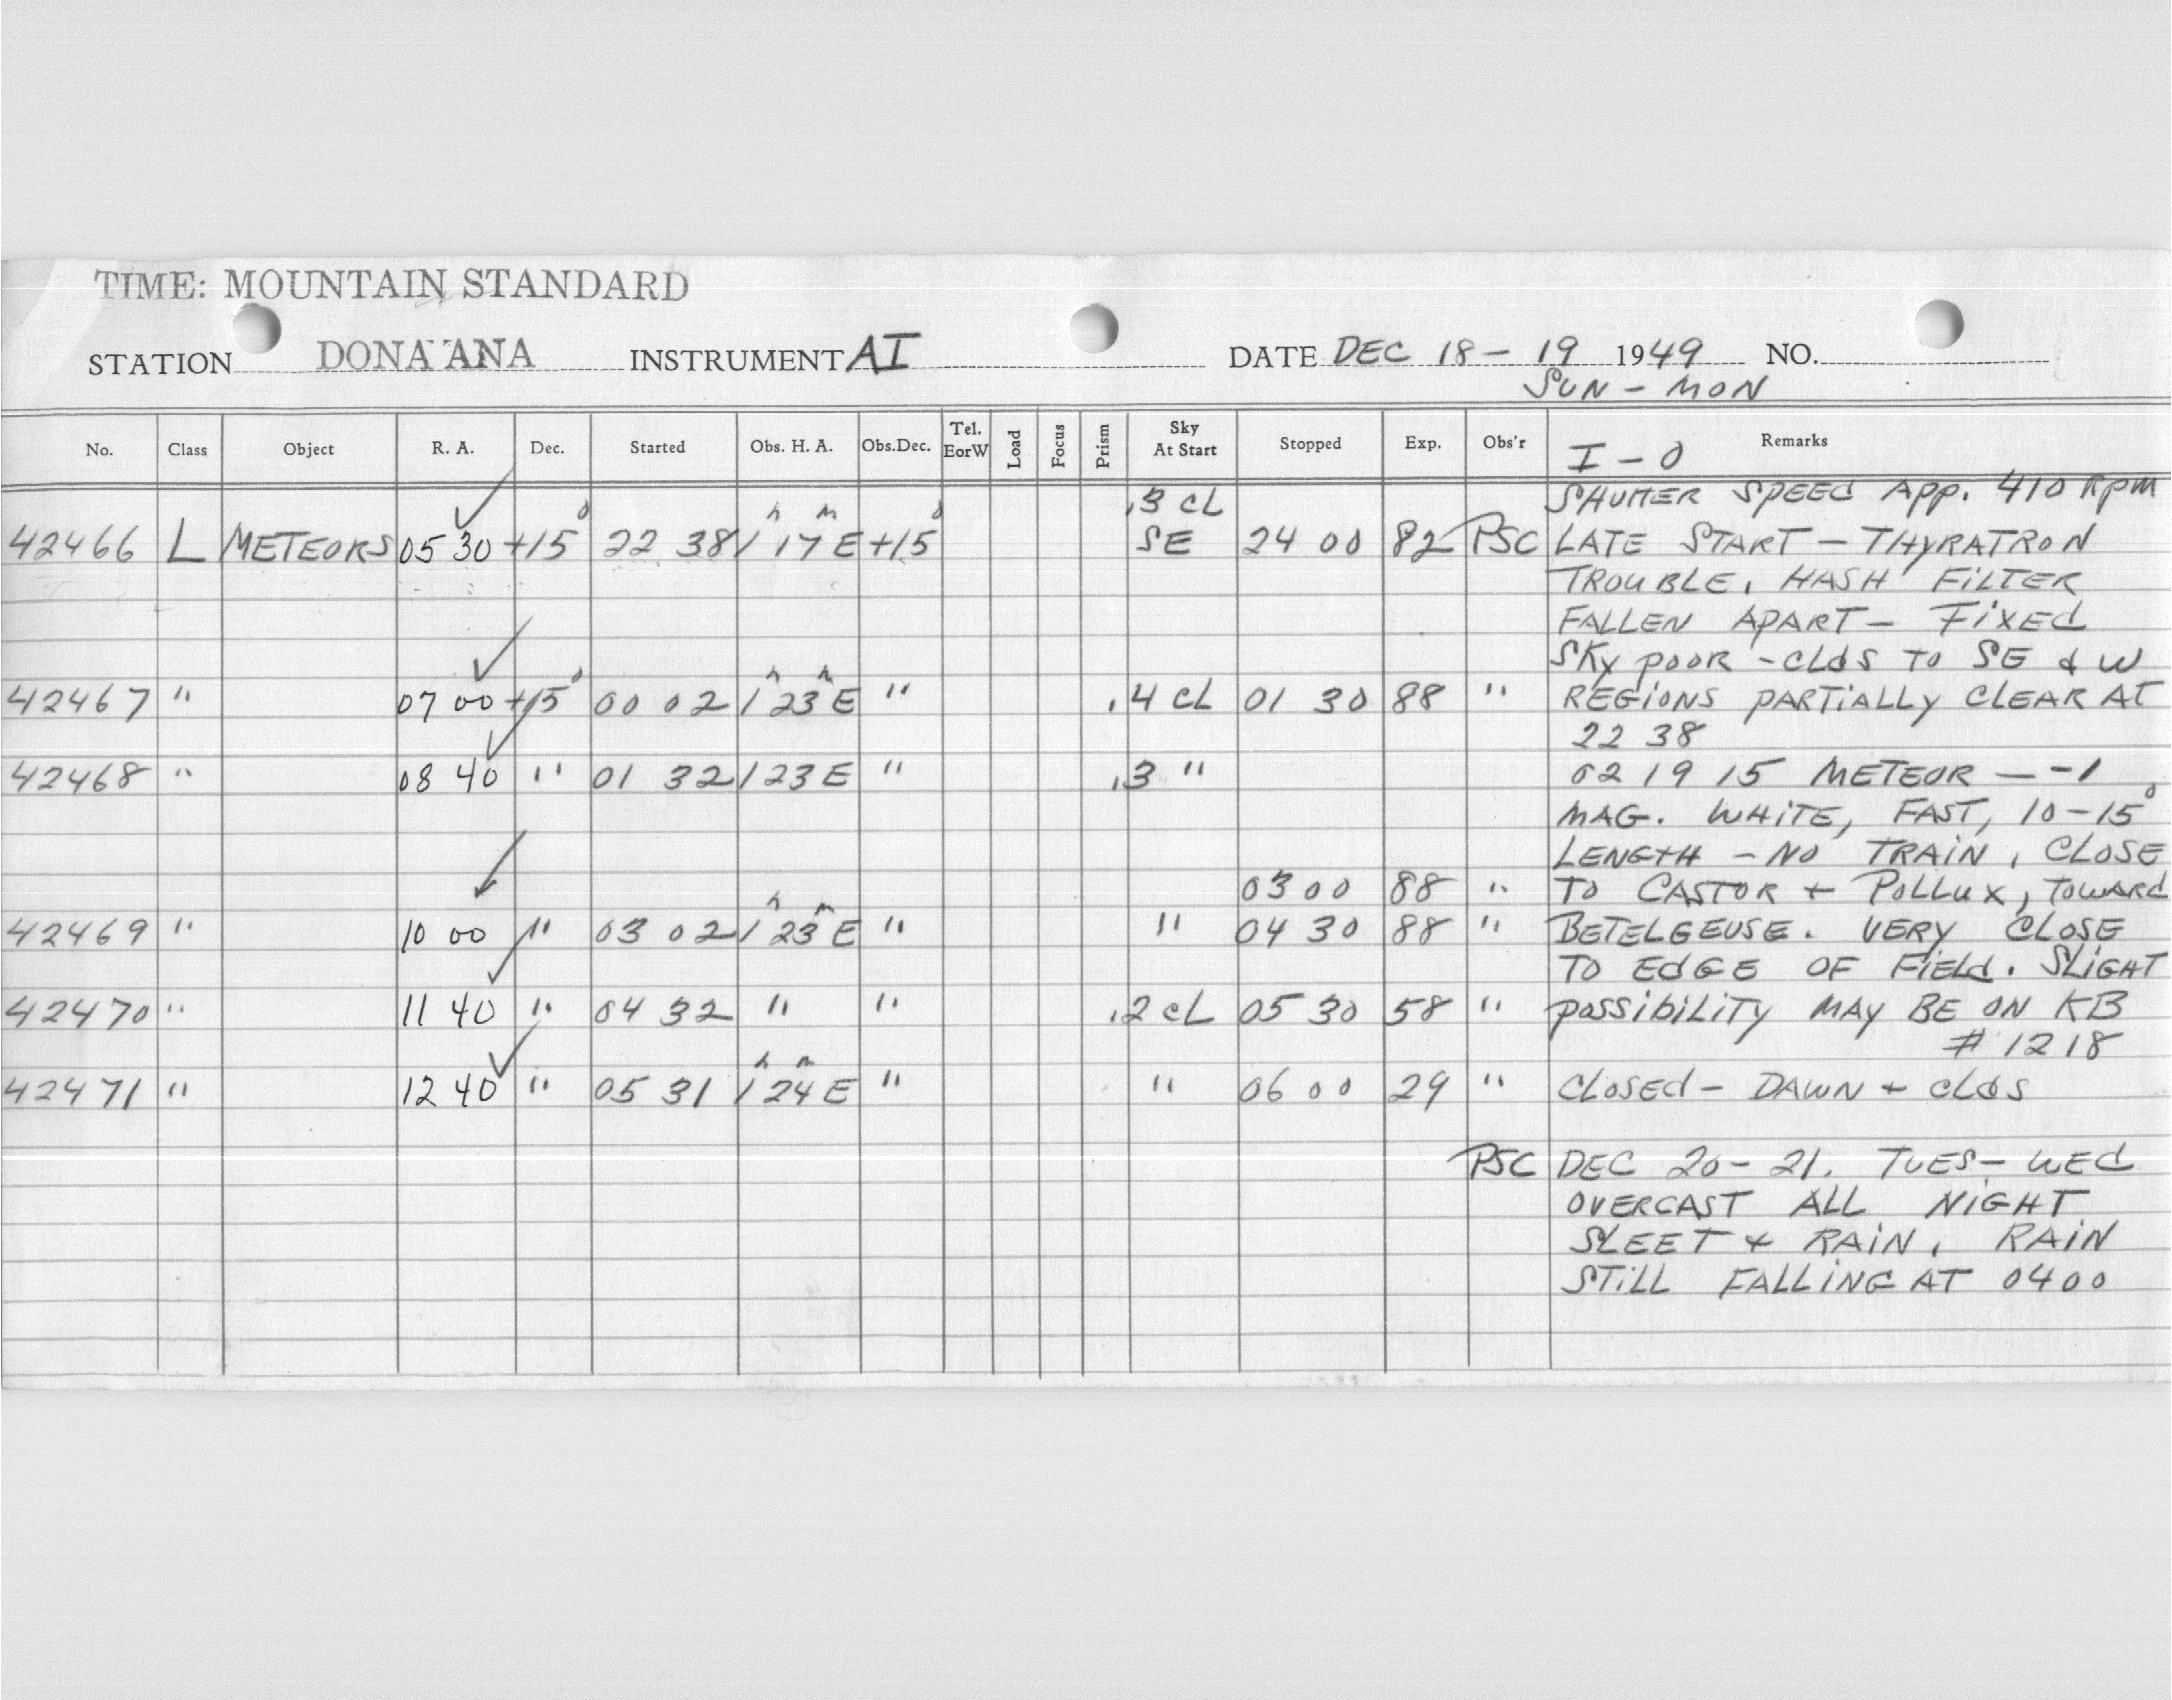 TIME: MOUNTAIN STANDARD
STATION DONA ANA INSTRUMENT AI DATE DEC 18 - 19 1949 NO.
SUN - MON
No. Class Object R. A. Dec. Started Obs. H. A. Obs.Dec. Tel. EorW Load Focus Prism Sky At Start Stopped Exp. Obs'r Remarks
I - O
SHUTTER SPEED APP. 410 RPM
.3 CL
42466 L METEORS 05 30 +15° 22 38 1h 17m E +15° SE 24 00 82 PSC LATE START - THYRATRON
TROUBLE. HASH FILTER
FALLEN APART - FIXED
SKY POOR - CLDS TO SE & W
42467 " 07 00 +15° 00 02 1h 23m E " .4 CL 01 30 88 " REGIONS PARTIALLY CLEAR AT
22 38
42468 " 08 40 " 01 32 1 23 E " .3 " 02 19 15 METEOR - -1
MAG. WHITE, FAST, 10-15°
LENGTH - NO TRAIN, CLOSE
03 00 88 " TO CASTOR + POLLUX, TOWARD
42469 " 10 00 " 03 02 1h 23m E " " 04 30 88 " BETELGEUSE. VERY CLOSE
TO EDGE OF FIELD. SLIGHT
42470 " 11 40 " 04 32 " " .2 CL 05 30 58 " POSSIBILITY MAY BE ON KB
# 1218
42471 " 12 40 " 05 31 1h 24m E " " 06 00 29 " CLOSED - DAWN + CLDS
PSC DEC 20-21. TUES - WED
OVERCAST ALL NIGHT
SLEET + RAIN. RAIN
STILL FALLING AT 0400